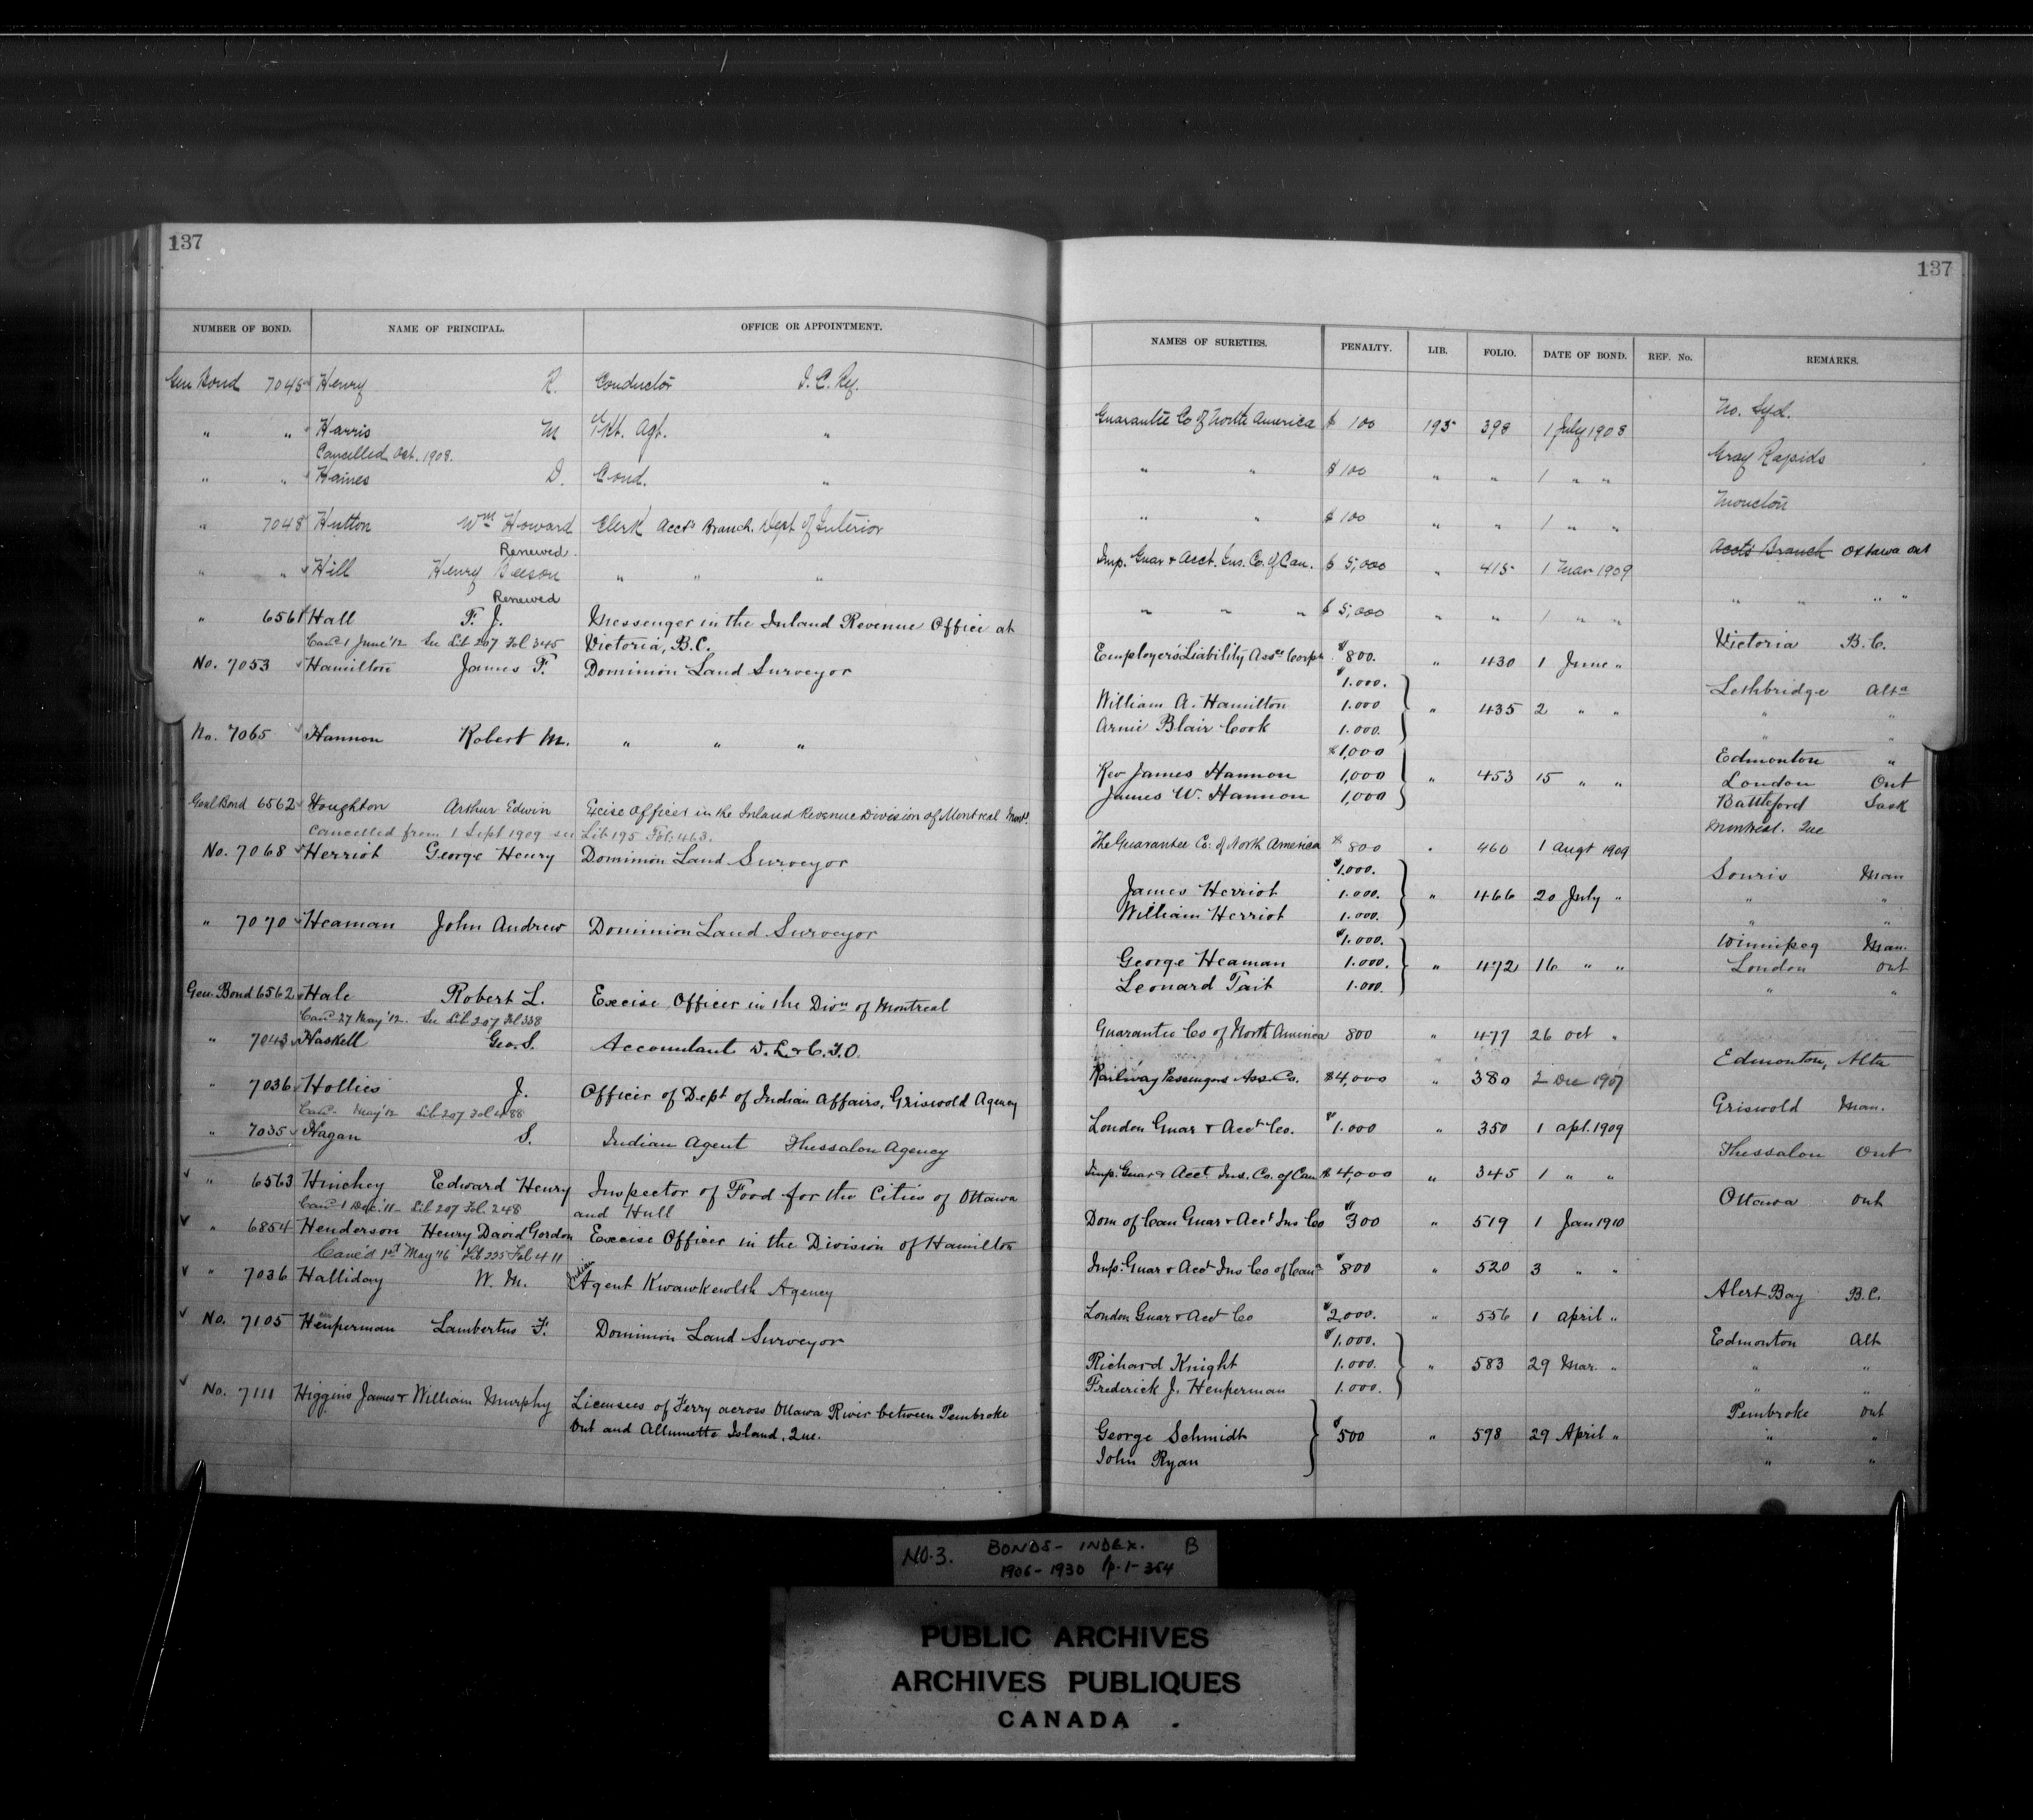 137
NUMBER OF BOND. NAME OF PRINCIPAL. OFFICE OR APPOINTMENT.
Gen Bond 7045 Henry R. Conductor I.C. Ry.
" " Harris M Tkt. Agt. "
Cancelled Oct. 1908.
" " Haines D. Cond. "
" 7048 Hutton Wm Howard Clerk Accts Branch. Dept of Interior
Renewed.
" " Hill Henry Beeson " " "
Renewed
" 6561 Hall F. J. Messenger in the Inland Revenue Office at
Cancd 1 June '12 See Lib 207 Fol 345 Victoria, B.C.
No. 7053 Hamilton James F. Dominion Land Surveyor
No. 7065 Hannon Robert M. " " "
Genl Bond 6562 Houghton Arthur Edwin Excise Officer in the Inland Revenue Division of Montreal
Cancelled from 1 Sept 1909 see Lib 195 Fol. 463.
No. 7068 Herriot George Henry Dominion Land Surveyor
" 7070 Heaman John Andrew Dominion Land Surveyor
Gen. Bond 6562 Hale Robert L. Excise Officer in the Divn of Montreal
Cancd 27 May '12. See Lib 207 Fol 338
" 7043 Haskell Geo. S. Accountant D. L. & C. T. O.
" 7036 Hollies J. Officer of Dept of Indian Affairs, Griswold Agency
Cancd May '12 Lib 207 Fol 488
" 7035 Hagan S. Indian Agent Thessalon Agency
" 6563 Hinchey Edward Henry Inspector of Food for the Cities of Ottawa
Cancd 1 Dec. '11 Lib 207 Fol. 248 and Hull
" 6854 Henderson Henry David Gordon Excise Officer in the Division of Hamilton
Canc'd 1st May '16 Lib 225 Fol 411
" 7036 Halliday W. M. Indian Agent Kwawkewlth Agency
No. 7105 Heuperman Lambertus F. Dominion Land Surveyor
No. 7111 Higgins James & William Murphy Licensees of Ferry across Ottawa River between Pembroke
Ont and Allumette Island, Que.
137
NAMES OF SURETIES. PENALTY. LIB. FOLIO. DATE OF BOND. REF. No. REMARKS.
No. Syd.
Guarantee Co of North America $ 100 195 398 1 July 1908
Gray Rapids
" " $ 100 " " 1 " "
Moncton
" " $ 100 " " 1 " "
Accts Branch Ottawa Ont
Imp. Guar & Acct. Ins. Co. of Can. $ 5,000 " 415 1 Mar 1909
" " " "
" " " $ 5,000 " " 1 " "
Victoria B.C.
Employers' Liability Assce Corpn $800. " 430 1 June "
$1.000. Lethbridge Alta
William A. Hamilton 1.000 " 435 2 " " " "
Arnie Blair Cook 1.000. " "
$1,000 Edmonton "
Rev James Hannon 1,000 " 453 15 " " London Ont
James W. Hannon 1,000 Battleford Sask
Montreal. Que
The Guarantee Co. of North America $ 800 " 460 1 Augt 1909
$1.000. Souris Man
James Herriot 1.000. " 466 20 July " " "
William Herriot 1.000. " "
$1.000. Winnipeg Man.
George Heaman 1.000. " 472 16 " " London Ont
Leonard Tait 1.000. " "
Guarantee Co of North America 800 " 477 26 Oct "
Edmonton, Alta
Railway Passengers Ass. Co. $4,000 " 380 2 Dec 1907
Griswold Man.
London Guar & Acct Co. $1.000 " 350 1 Apl. 1909
Thessalon Ont
Imp. Guar & Acct Ins. Co. of Can $4,000 " 345 1 " "
Ottawa Ont
Dom of Can Guar & Acct Ins Co $300 " 519 1 Jan 1910
Imp. Guar & Acct Ins Co of Cana $800 " 520 3 " "
Alert Bay B.C.
London Guar & Acct Co $2,000. " 556 1 April "
$1.000. Edmonton Alt
Richard Knight 1.000. " 583 29 Mar. " " "
Frederick J. Heuperman 1.000. " "
Pembroke Ont
George Schmidt $500 " 598 29 April " " "
John Ryan " "
NO. 3. BONDS - INDEX. B
1906 - 1930 p. 1 - 354
PUBLIC ARCHIVES
ARCHIVES PUBLIQUES
CANADA